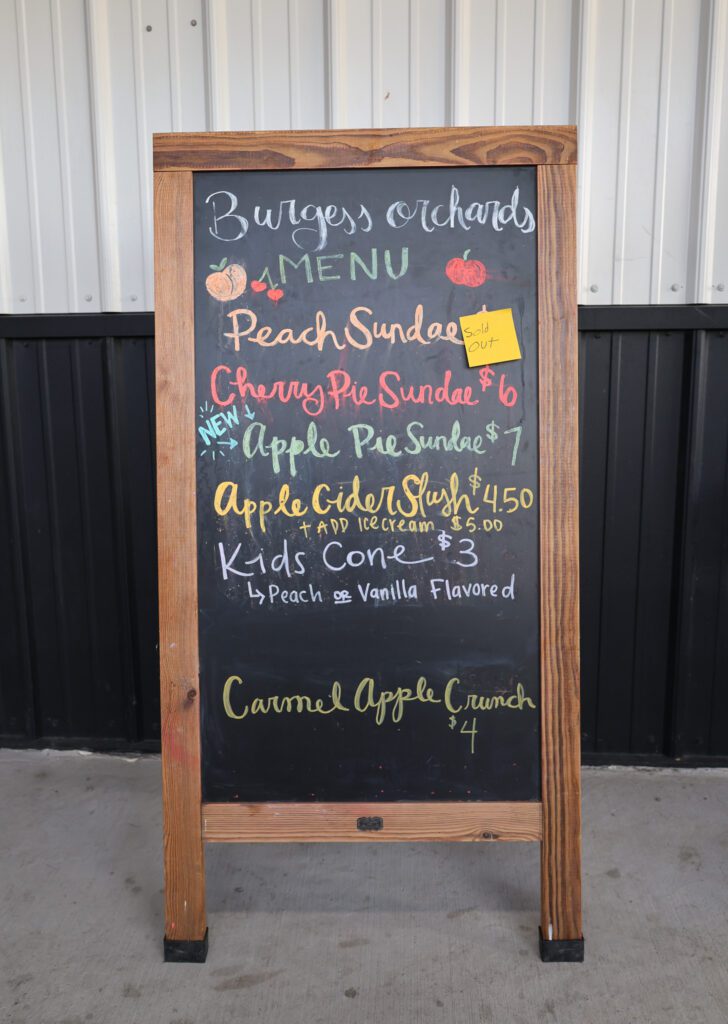 Burgess orchards
MENU
Peach Sundae
Sold
out
Cherry Pie Sundae $6
NEW
Apple Pie Sundae $7
Apple Cider Slush $4.50
+ ADD Icecream $5.00
Kids Cone $3
↳Peach OR Vanilla Flavored
Carmel Apple Crunch
$4